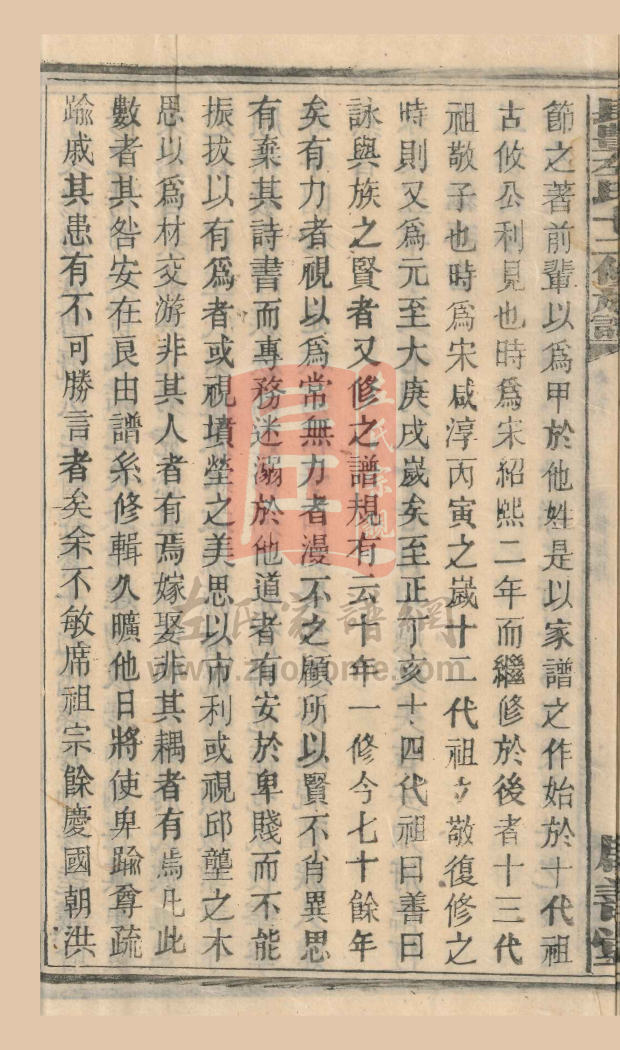 節之著前輩以爲甲於他姓是以家譜之作始於十代祖
古攸公利見也時爲宋紹熙二年而繼修於後者十三代
祖敬子也時爲宋咸淳丙寅之歲十二代祖立敬復修之
時則又爲元至大庚戌歲矣至正丁亥十四代祖曰善曰
詠與族之賢者又修之譜規有云十年一修今七十餘年
矣有力者視以爲常無力者漫不之顧所以賢不肖異思
有棄其詩書而專務迷溺於他道者有安於卑賤而不能
振拔以有爲者或視墳塋之美思以市利或視邱壟之木
思以爲材交游非其人者有焉嫁娶非其耦者有焉凡此
數者其咎安在良由譜系修輯久曠他日將使卑踰尊疏
踰戚其患有不可勝言者矣余不敏席祖宗餘慶國朝洪
左氏宗親
左氏家譜網
www.zuohome.com